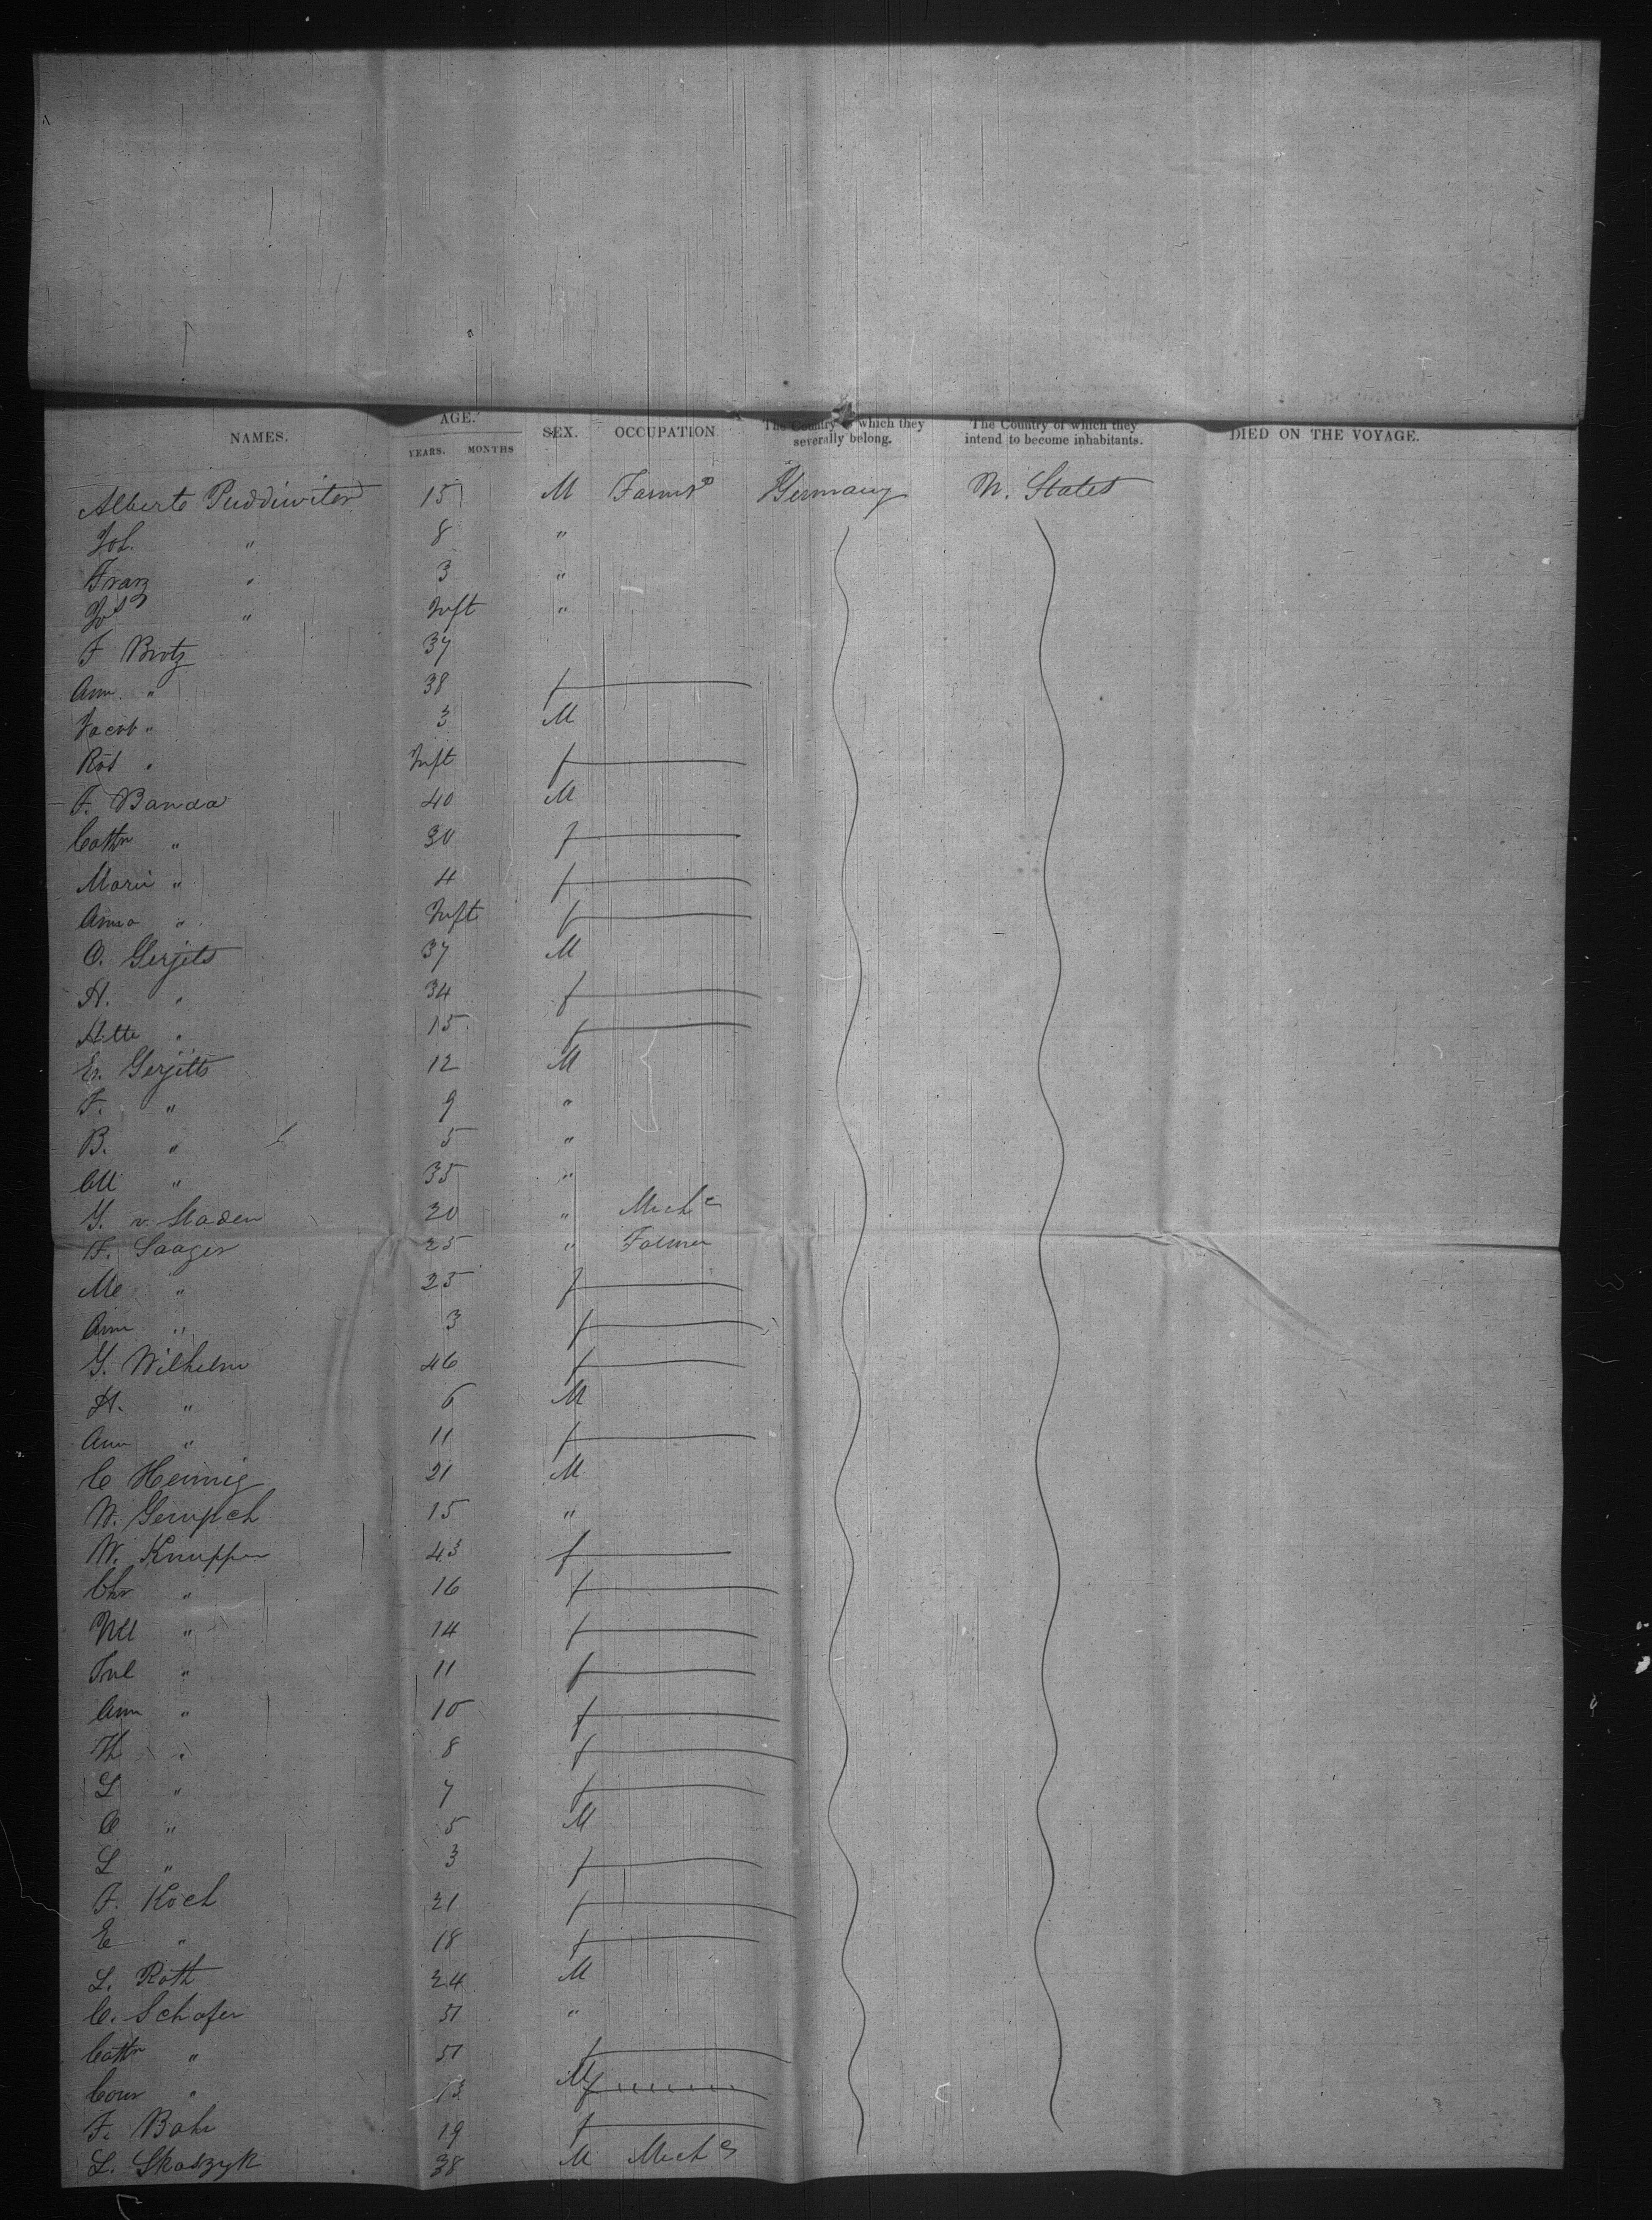 NAMES. AGE. YEARS. MONTHS SEX. OCCUPATION The Country which they severally belong. The Country of which they intend to become inhabitants. DIED ON THE VOYAGE.
Alberte 15 M Farmr Germany U. States
Joh. " 8 "
Franz " 3 "
" Inft "
F Brotz 37
Ann " 38 f
Jacob " 3 M
Rob " Inft f
F. Banda 40 M
Cathr " 30 f
Marie " 4 f
Anna " Inft f
O. Gerjets 37 M
A. " 34 f
" 15 f
Er. Gerjets 12 M
F. " 9 "
B. " 5 "
" 35 "
G. v. Staden 20 " Mech c
F. Saager 25 " Farmer
Me " 25 f
Ann " 3 f
G. Wilhelm 46 f
H. " 6 M
Ann " 11 f
C Hennig 21 M
W. 15 "
W. Knupper 43 f
Chr " 16 f
" 14 f
Jul " 11 f
Ann " 10 f
Th " 8 f
L " 7 f
O " 5 M
L " 3 f
F. Koch 21 f
E " 18 f
L. Roth 24 M
C. Schafer 51 "
Cathr " 51 f
" 13 M
F. Bahr 19 f
L. Skoszyk 38 M Mech c